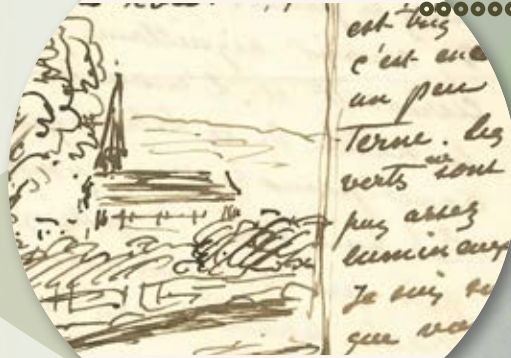 est très
c'est enc
un peu
terne. les
verts sont
pas assez
lumineux
Je suis su
que vo